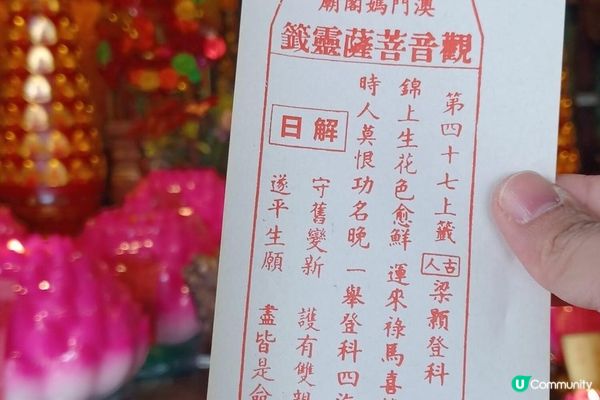 澳門媽閣廟
觀音菩薩靈籤
第四十七上籤 古人 梁顥登科
錦上生花色愈鮮 運來祿馬喜
時人莫恨功名晚 一舉登科四海
解曰
守舊變新 護有雙親
遂平生願 盡皆是命
U Community